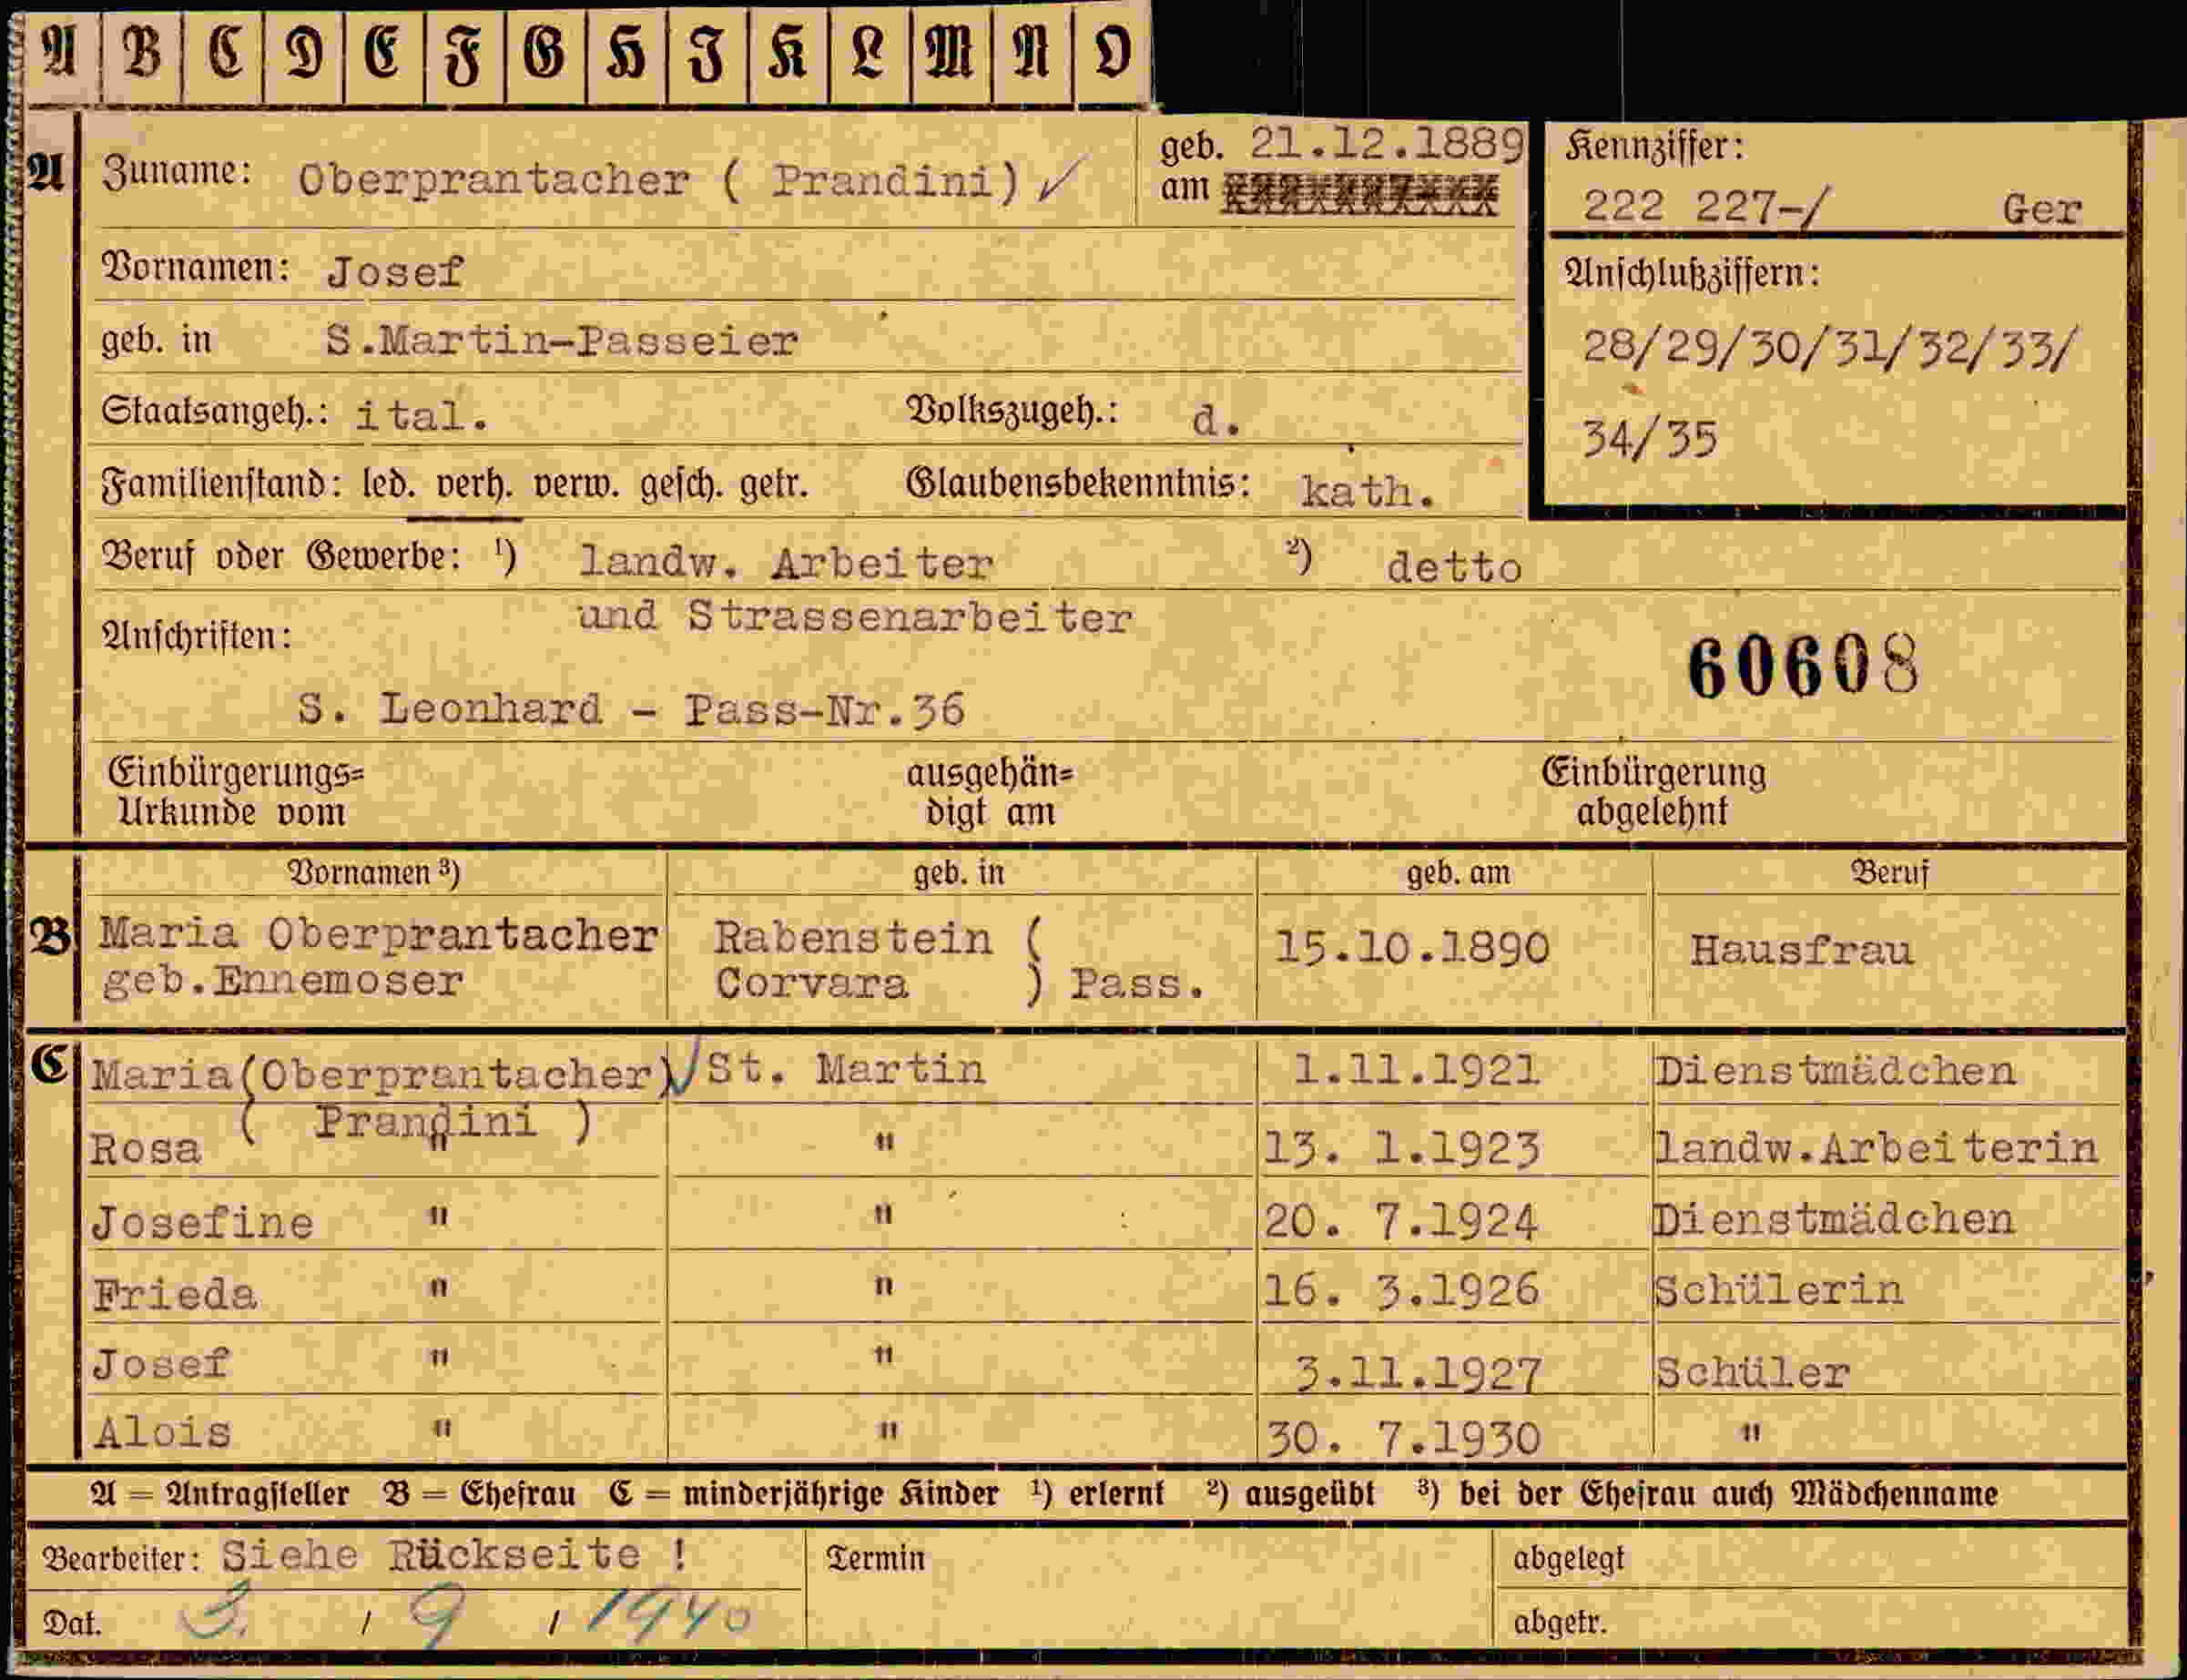 A B C D E F G H I K L M N O
A Zuname: Oberprantacher ( Prandini)
geb. am 21.12.1889
Kennziffer:
222 227-/ Ger
Vornamen: Josef
Anschlußziffern:
geb. in S.Martin-Passeier
28/29/30/31/32/33/
34/35
Staatsangeh.: ital. Volkszugeh.: d.
Familienstand: led. verh. verw. gesch. getr. Glaubensbekenntnis: kath.
Beruf oder Gewerbe: ¹) landw. Arbeiter ²) detto
und Strassenarbeiter
Anschriften:
60608
S. Leonhard - Pass-Nr.36
Einbürgerungs= ausgehän= Einbürgerung
Urkunde vom digt am abgelehnt
Vornamen ³) geb. in geb. am Beruf
B Maria Oberprantacher Rabenstein ( 15.10.1890 Hausfrau
geb.Ennemoser Corvara ) Pass.
C Maria(Oberprantacher) St. Martin 1.11.1921 Dienstmädchen
( Prandini )
Rosa " " 13. 1.1923 landw.Arbeiterin
Josefine " " 20. 7.1924 Dienstmädchen
Frieda " " 16. 3.1926 Schülerin
Josef " " 3.11.1927 Schüler
Alois " " 30. 7.1930 "
A = Antragsteller B = Ehefrau C = minderjährige Kinder ¹) erlernt ²) ausgeübt ³) bei der Ehefrau auch Mädchenname
Bearbeiter: Siehe Rückseite ! Termin abgelegt
Dat. 3. / 9 / 1940 abgetr.